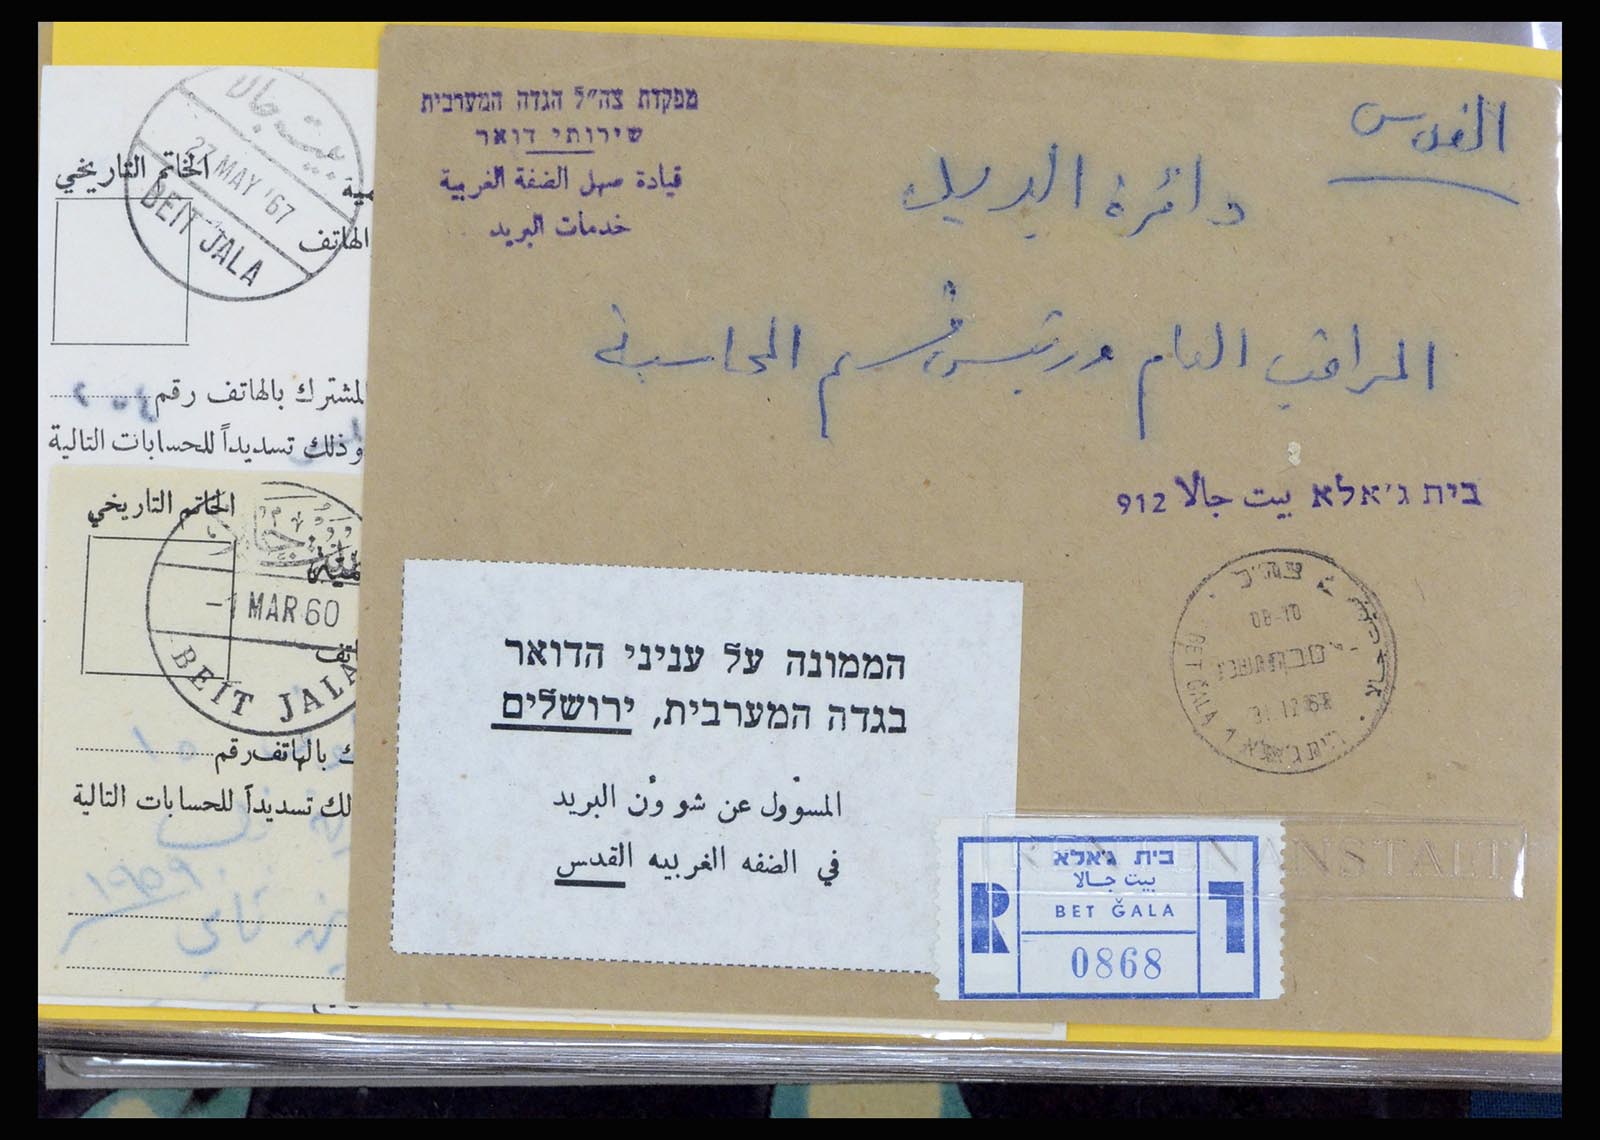 بيت جالا
27 MAY '67
BEIT JALA
الخاتم التاريخي
الهاتف
المشترك بالهاتف رقم
وذلك تسديداً للحسابات التالية
الخاتم التاريخي
-1 MAR 60
BEIT JALA
بالهاتف رقم
لك تسديداً للحسابات التالية
١٩٥٩
מפקדת צה"ל הגדה המערבית
שירותי דואר
قيادة صهل الضفة الغربية
خدمات البريد
القدس
دائرة البريد
المراقب العام ورئيس قسم المحاسبة
בית ג'אלא بيت جالا 912
08-10
بيت جالا
BET ĞALA
הממונה על עניני הדואר
בגדה המערבית, ירושלים
المسؤول عن شوؤن البريد
في الضفه الغربيه القدس
בית ג'אלא
بيت جالا
BET ĞALA
R
ר
0868